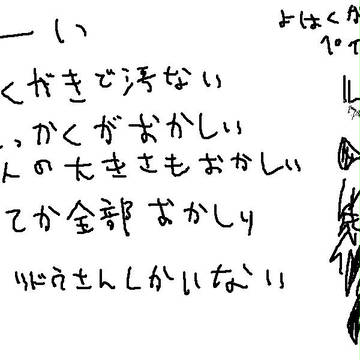 ーい
くがきで汚ない
っかくがおかしい
んの大きさもおかしい
てか全部おかしい
りドウさんしかいない
よはくが
ペイ